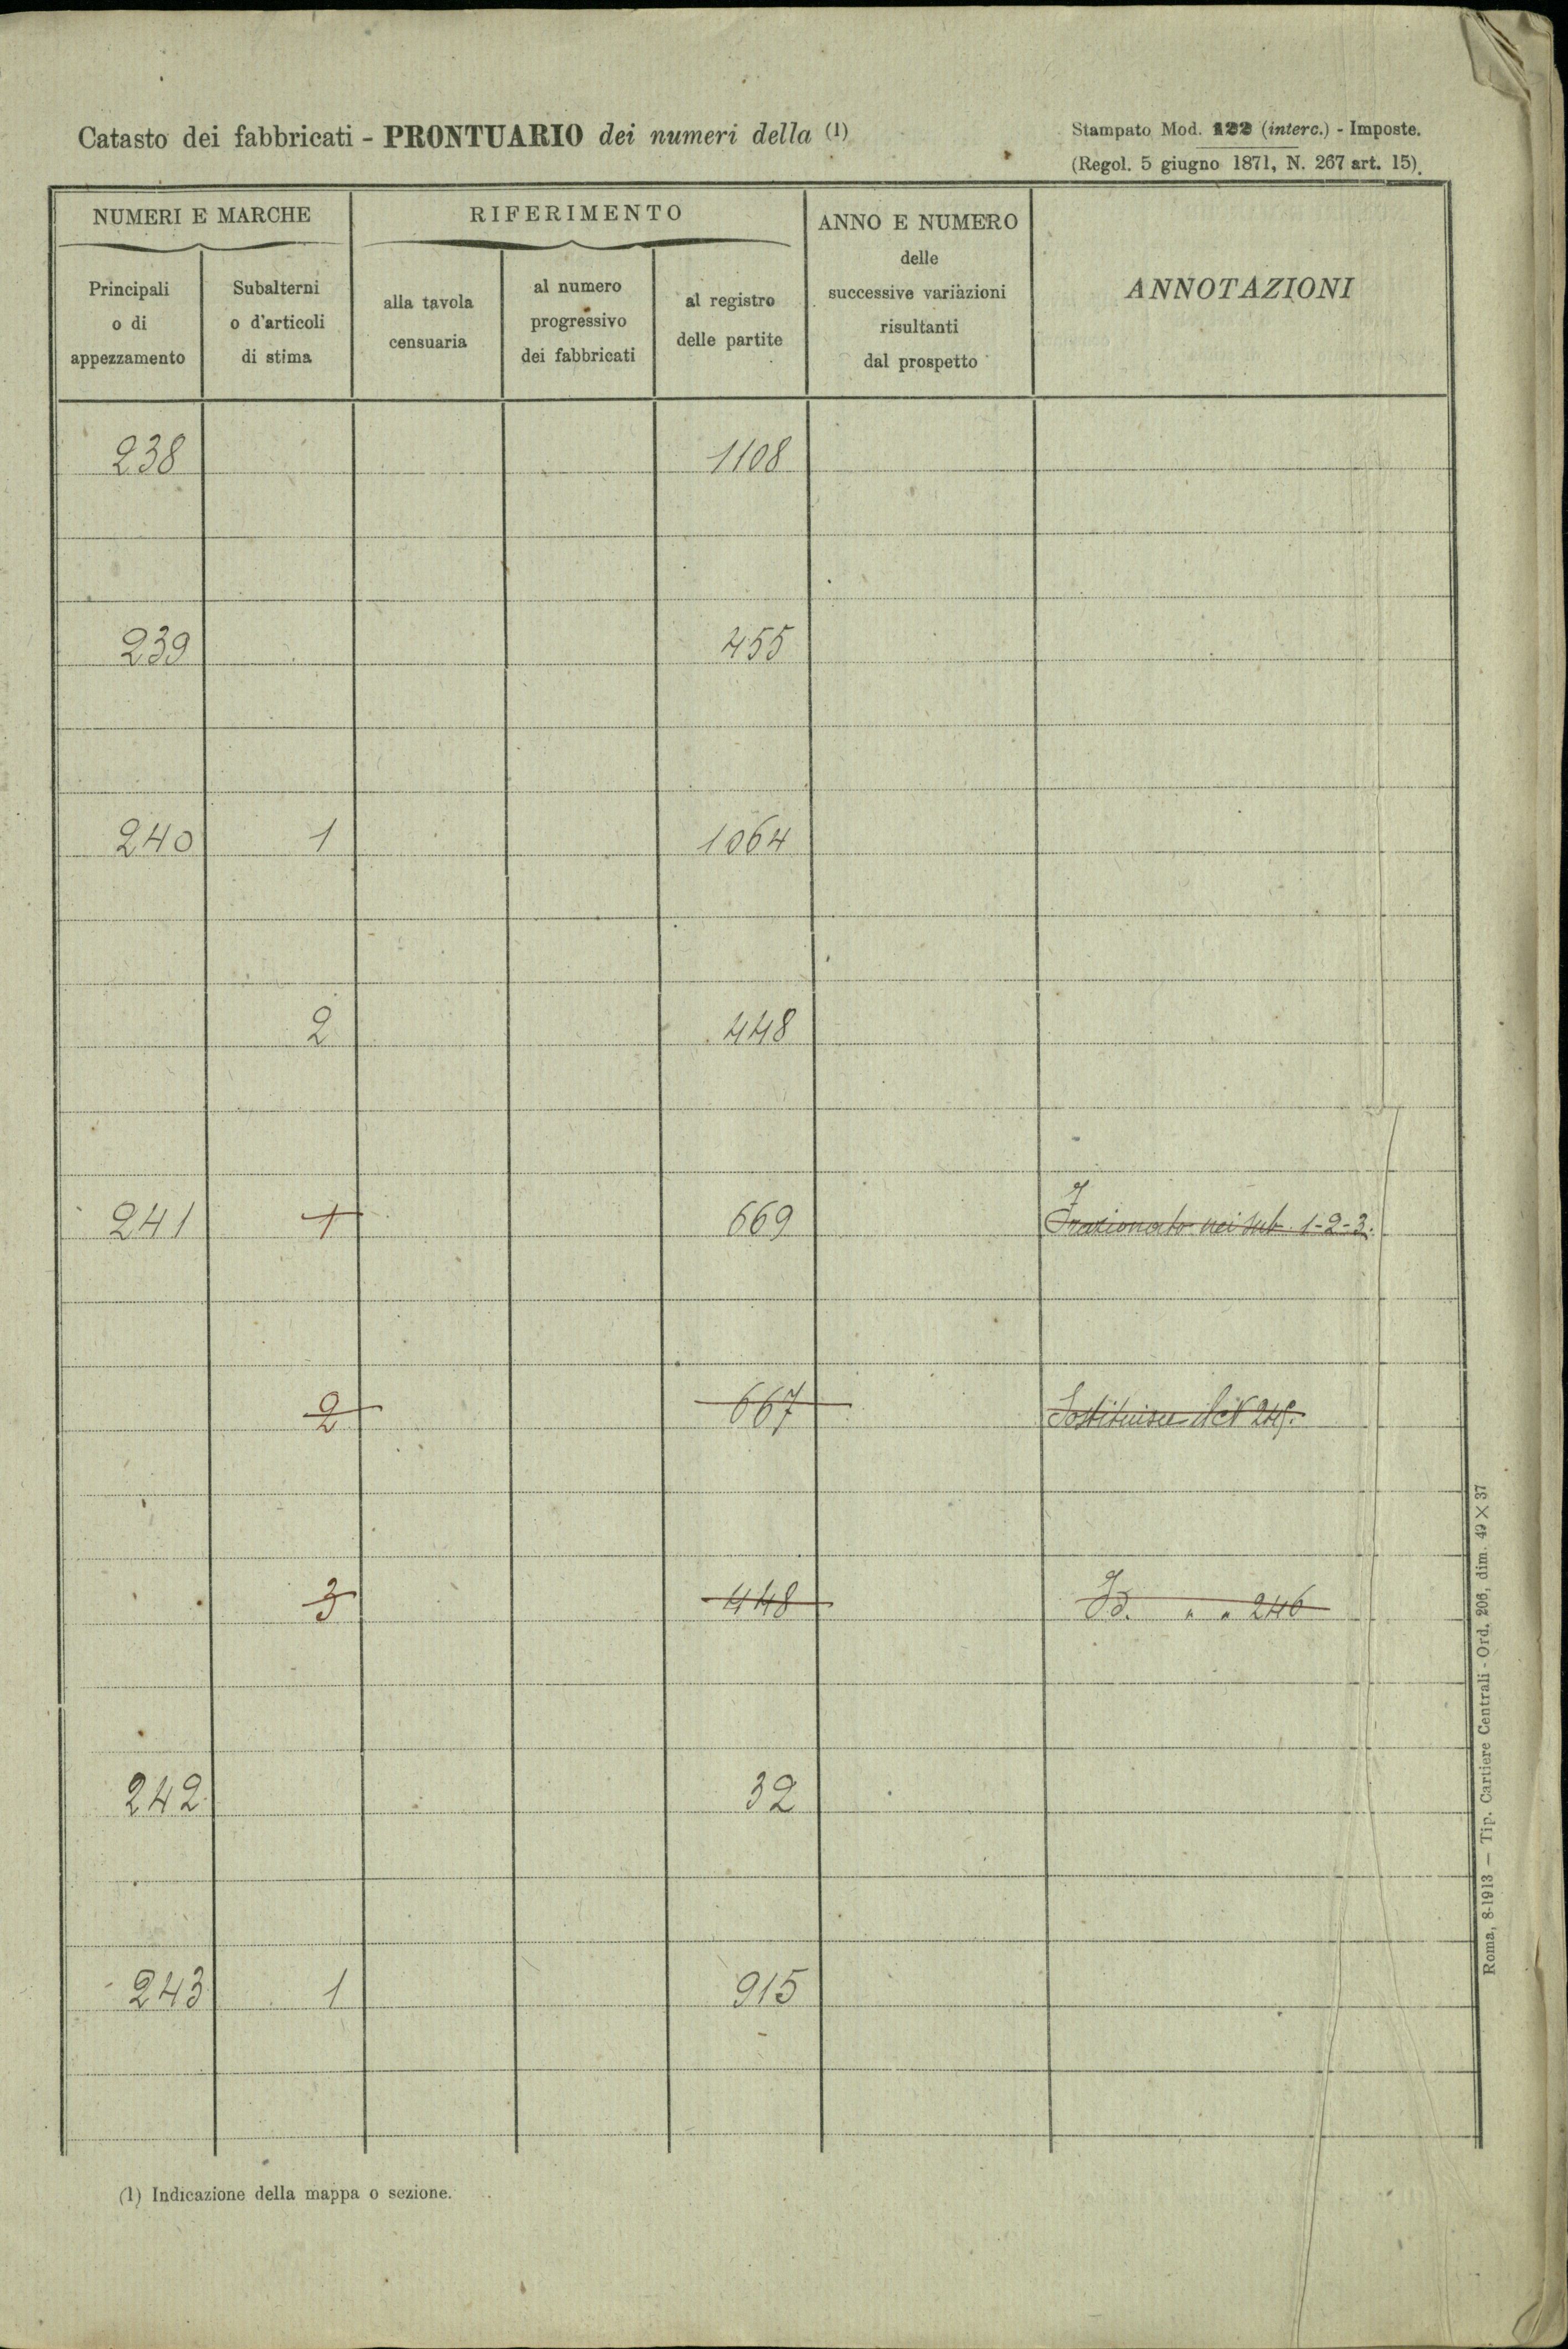 Catasto dei fabbricati - PRONTUARIO dei numeri della (1)
Stampato Mod. 122 (interc.) - Imposte.
(Regol. 5 giugno 1871, N. 267 art. 15).
NUMERI E MARCHE
RIFERIMENTO
ANNO E NUMERO
delle
successive variazioni
risultanti
dal prospetto
ANNOTAZIONI
Principali
o di
appezzamento
Subalterni
o d'articoli
di stima
alla tavola
censuaria
al numero
progressivo
dei fabbricati
al registro
delle partite
238 1108
239 455
240 1 1064
2 448
241 1 669 Frazionato nei sub. 1-2-3.
2 667 Sostituisce il N
3 448 Id. " " 246
242 32
243 1 915
(1) Indicazione della mappa o sezione.
Roma, 8-1913 — Tip. Cartiere Centrali - Ord. 206, dim. 49 × 37